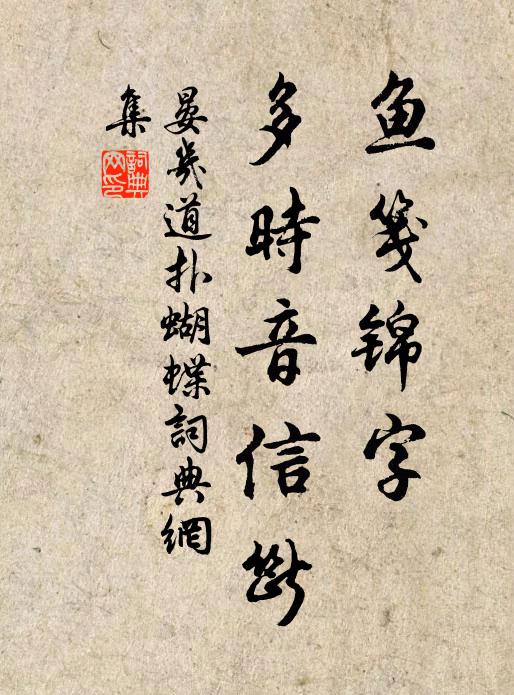 鱼笺锦字
多時音信斷
晏幾道扑蝴蝶詞典網
集
詞典网印